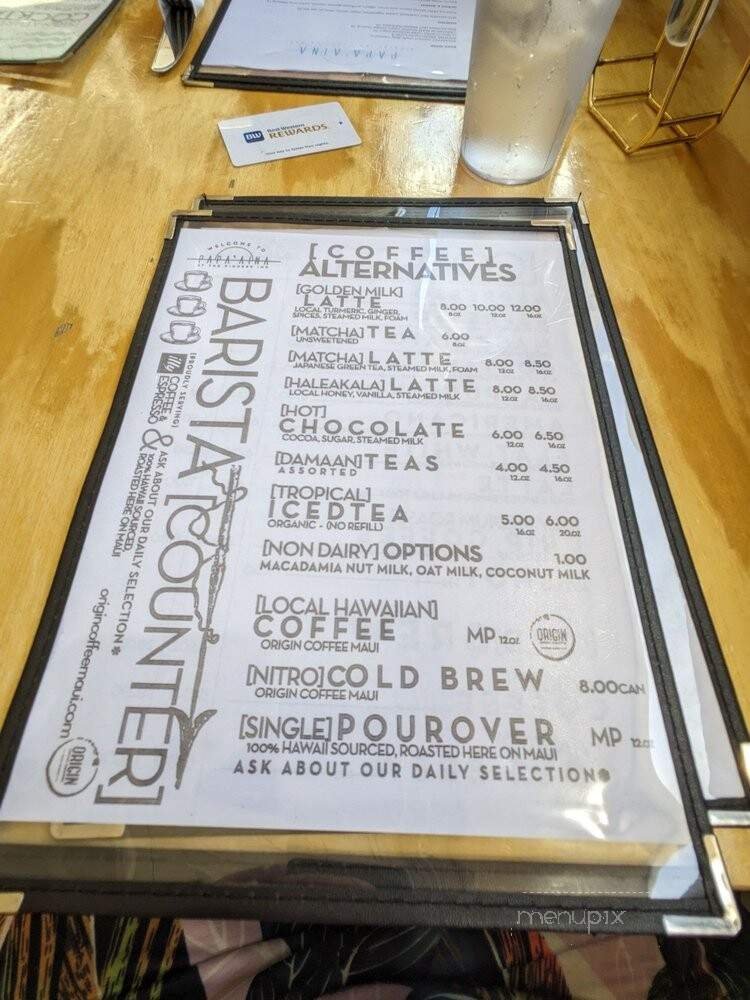 COCKT
PAPA'AINA
BW Best Western
REWARDS
WELCOME TO
PAPA'AINA
AT THE PIONEER INN
BARISTA [COUNTER]
[PROUDLY SERVING]
illy COFFEE &
ESPRESSO
&
ASK ABOUT OUR DAILY SELECTION*
100% HAWAII SOURCED,
ROASTED HERE ON MAUI
origincoffeemaui.com
ORIGIN
[COFFEE]
ALTERNATIVES
[GOLDEN MILK]
LATTE 8.00 10.00 12.00
LOCAL TURMERIC, GINGER, 8oz 12oz 16oz
SPICES, STEAMED MILK, FOAM
[MATCHA] TEA 6.00
UNSWEETENED 8oz
[MATCHA] LATTE 8.00 8.50
JAPANESE GREEN TEA, STEAMED MILK, FOAM 12oz 16oz
[HALEAKALA] LATTE 8.00 8.50
LOCAL HONEY, VANILLA, STEAMED MILK 12oz 16oz
[HOT]
CHOCOLATE 6.00 6.50
COCOA, SUGAR, STEAMED MILK 12oz 16oz
[DAMAAN] TEAS 4.00 4.50
ASSORTED 12oz 16oz
[TROPICAL]
ICED TEA 5.00 6.00
ORGANIC - (NO REFILL) 16oz 20oz
[NON DAIRY] OPTIONS 1.00
MACADAMIA NUT MILK, OAT MILK, COCONUT MILK
[LOCAL HAWAIIAN]
COFFEE MP 12oz ORIGIN
ORIGIN COFFEE MAUI
[NITRO] COLD BREW 8.00CAN
ORIGIN COFFEE MAUI
[SINGLE] POUROVER MP 12oz
100% HAWAII SOURCED, ROASTED HERE ON MAUI
ASK ABOUT OUR DAILY SELECTION*
menupix